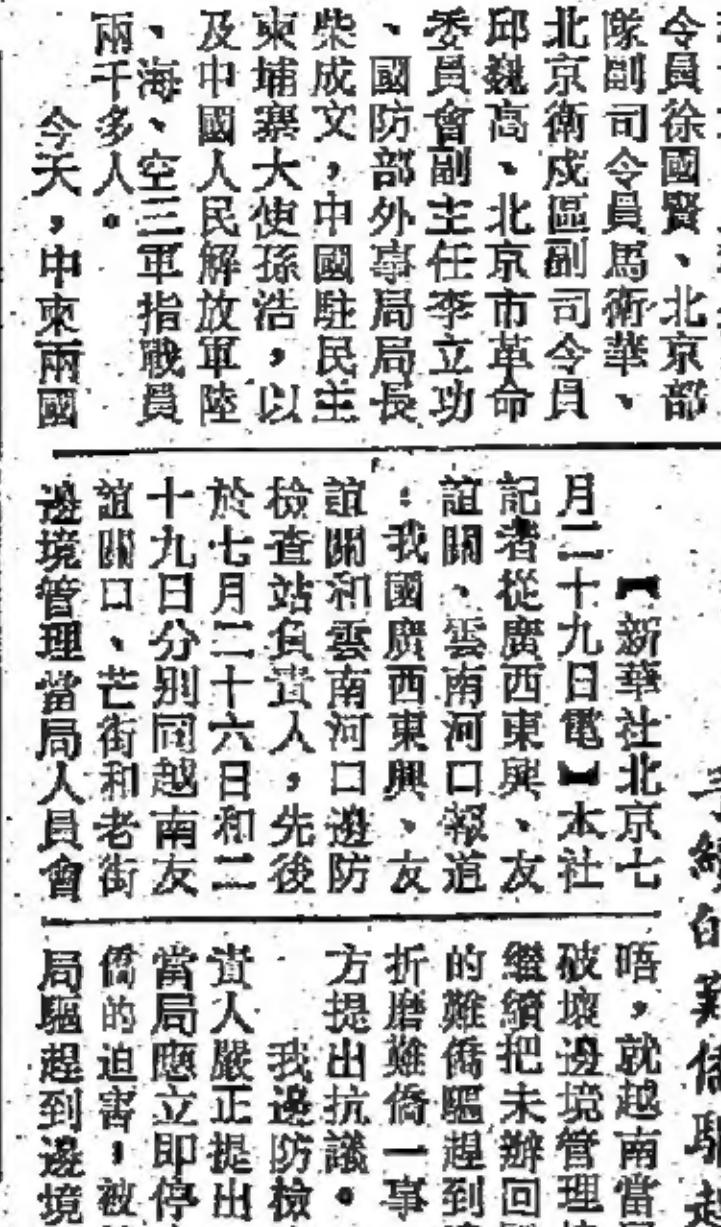 令員徐國賢、北京部
隊副司令員馬衛華、
北京衛戍區副司令員
邱巍高、北京市革命
委員會副主任李立功
、國防部外事局局長
柴成文，中國駐民主
柬埔寨大使孫浩，以
及中國人民解放軍陸
、海、空三軍指戰員
兩千多人。
今天，中柬兩國
的難僑驅趕
【新華社北京七
月二十九日電】本社
記者從廣西東興、友
誼關、雲南河口報道
：我國廣西東興、友
誼關和雲南河口邊防
檢查站負責人，先後
於七月二十六日和二
十九日分別同越南友
誼關口、芒街和老街
邊境管理當局人員會
晤，就越南當
破壞邊境管理
繼續把未辦回
的難僑驅趕到
折磨難僑一事
方提出抗議。
我邊防檢
責人嚴正提出
當局應立即停
僑的迫害，被
局驅趕到邊境